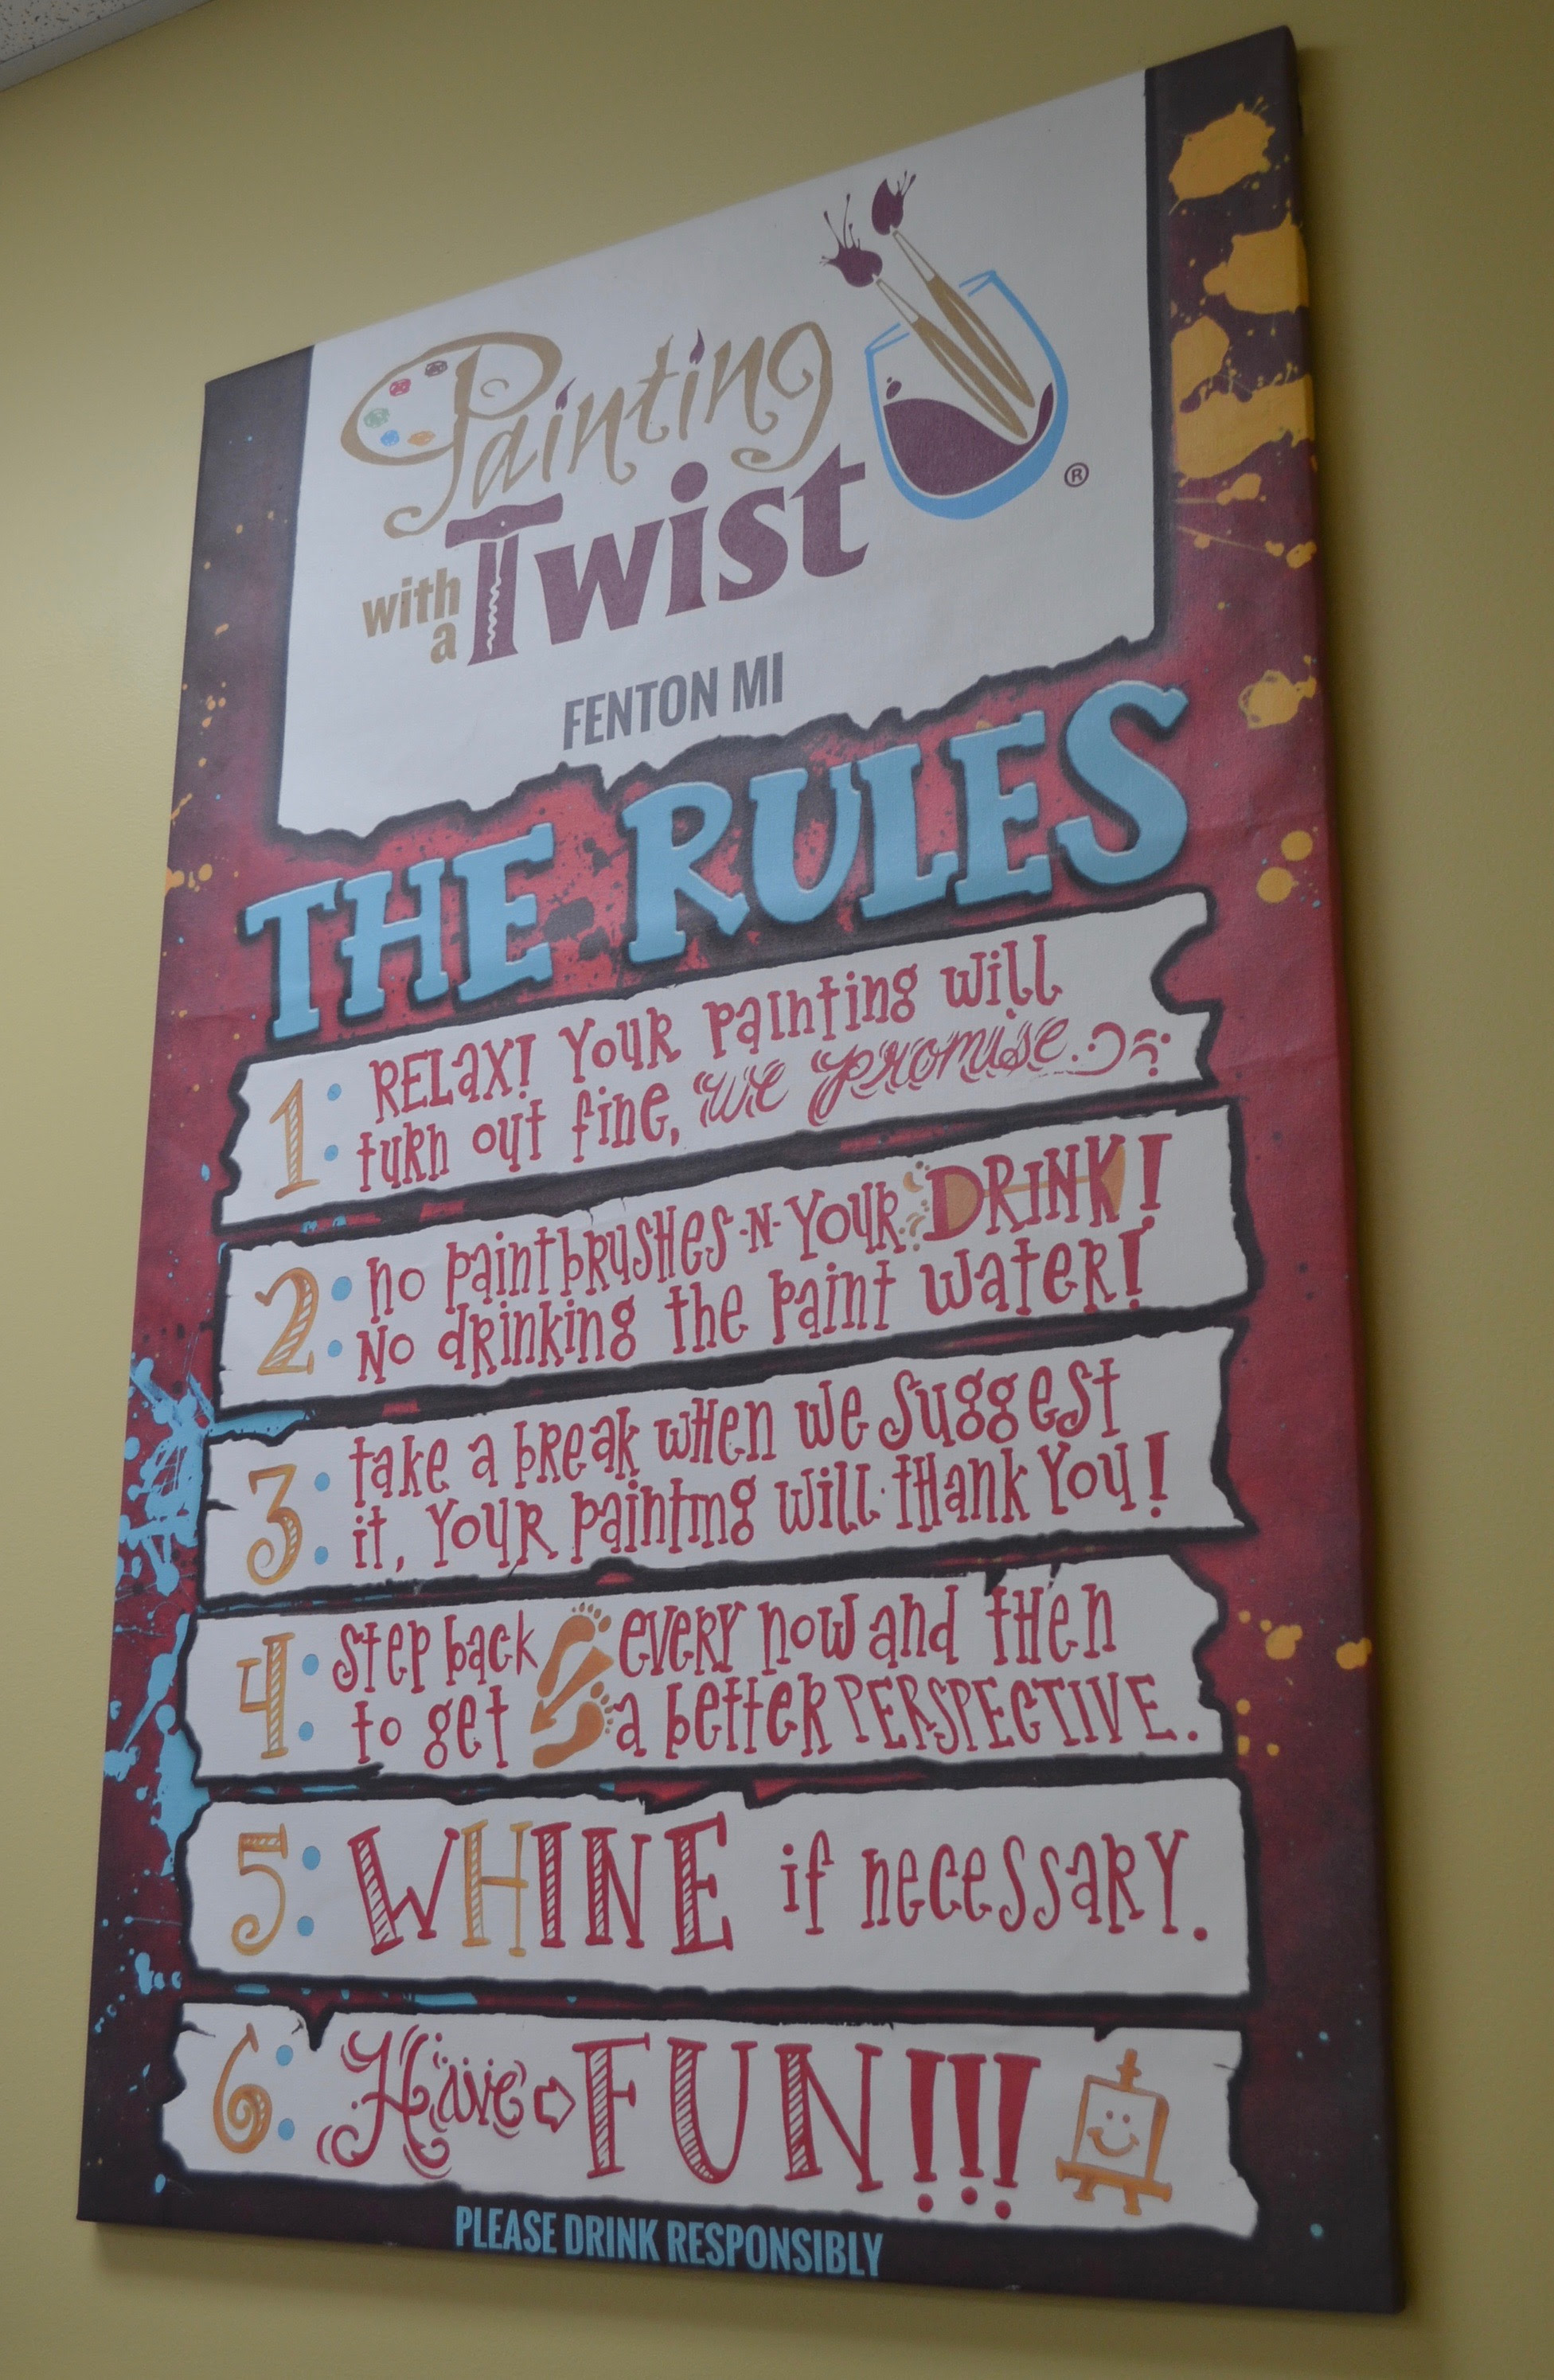 Painting
with a Twist ®
FENTON MI
THE RULES
1: RELAX! YOUR painting will
turn out fine, we promise.
2: no paintbrushes-N-YOUR DRINK!
No drinking the paint water!
3: take a bREak wHen we suggest
it, YOUR painting will tHank You!
4: step back every now and tHen
to get a better PERSPECTIVE.
5: WHINE if necessaRY.
6: Have FUN!!!
PLEASE DRINK RESPONSIBLY